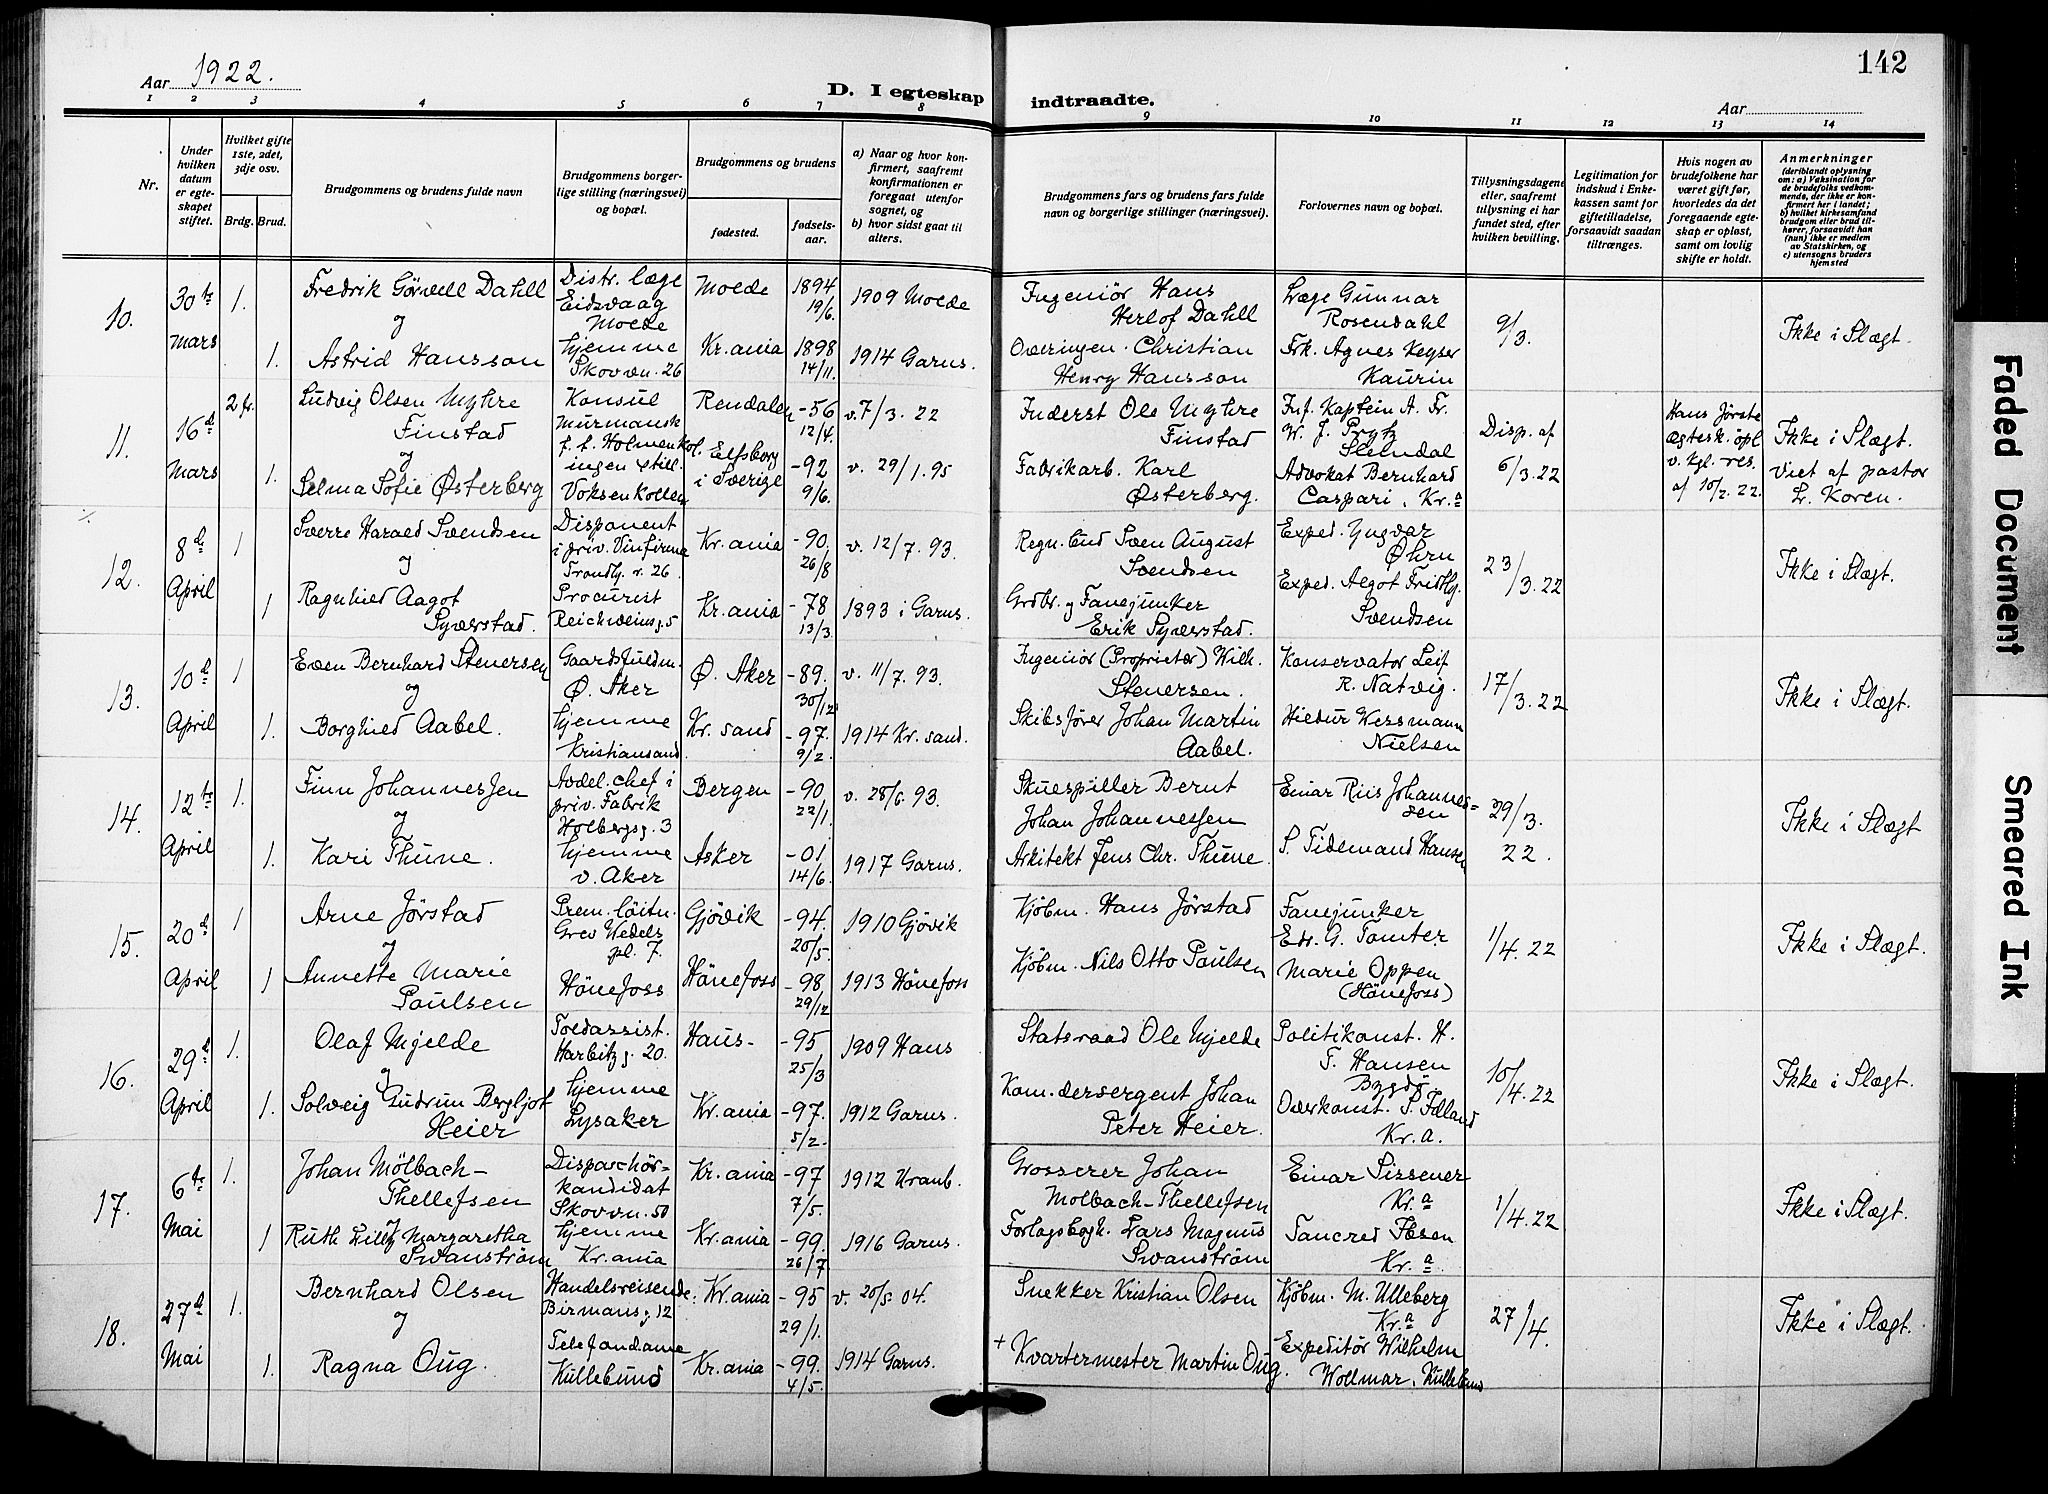 142
Aar 1922.
D. I egteskap indtraadte.
Aar
1 2 3 4 5 6 7 8 9 10 11 12 13 14
Nr.
Under hvilken datum er egteskapet stiftet.
Hvilket gifte 1ste, 2det, 3dje osv.
Brdg. Brud.
Brudgommens og brudens fulde navn
Brudgommens borgerlige stilling (næringsvei) og bopæl.
Brudgommens og brudens
fødested.
fødselsaar.
a) Naar og hvor konfirmert, saafremt konfirmationen er foregaat utenfor sognet, og
b) hvor sidst gaat til alters.
Brudgommens fars og brudens fars fulde navn og borgerlige stillinger (næringsvei).
Forlovernes navn og bopæl.
Tillysningsdagene eller, saafremt tillysning ei har fundet sted, efter hvilken bevilling.
Legitimation for indskud i Enkekassen samt for giftetilladelse, forsaavidt saadan tiltrænges.
Hvis nogen av brudefolkene har været gift før, hvorledes da det foregaaende egteskap er opløst, samt om lovlig skifte er holdt.
Anmerkninger (deriblandt oplysning om: a) Vaksination for de brudefolks vedkommende, der ikke er konfirmert her i landet; b) hvilket kirkesamfund brudgom eller brud tilhører, forsaavidt han (hun) ikke er medlem av Statskirken, og c) utensogns bruders hjemsted
10. 30te Mars 1. Fredrik Görvell Dahll Distr. læge Eidsvaag Molde Molde 1894 19/6. 1909 Molde Ingeniör Hans Herlof Dahll Læge Gunnar Rosendahl 9/3. Ikke i Slægt.
og
1. Astrid Hansson hjemme Skovvn. 26 Kr.ania 1898 14/11. 1914 Garns. Overingen. Christian Henry Hansson Frk. Agnes Keyser Kaurin
11. 16de Mars 2 fr. Ludvig Olsen Myhre Finstad Konsul Murmansk f. t. Holmenkol. Rendalen -56 12/4. v. 7/3. 22 Inderst Ole Myhre Finstad Inf. Kaptein A. Fr. W. J. Prytz Slemdal Disp. af 6/3. 22 Hans Jørste ægtesk. opl. v. kgl. res. af 10/2. 22. Ikke i Slægt. Viet af pastor L. Koren.
og
1. Selma Sofie Østerberg ingen still. Voksenkollen Elfsborg i Sverige -92 9/6. v. 29/1. 95 Fabrikarb. Karl Østerberg. Advokat Bernhard Caspari, Kr.a
12. 8de April 1 Sverre Harald Svendsen Disponent i priv. Vinfirma Trondhj. v. 26 Kr.ania -90. 26/8 v. 12/7. 93. Svend August Svendsen Exped. Yngvar Øhrn 23/3. 22 Ikke i Slægt.
og
1 Ragnhild Aagot Syverstad. Procurist Reichweinsg. 5 Kr.ania -78 13/3. 1893 i Garns. Grdbr. og Fanejunker Erik Syverstad. Exped. Algot Fridthj. Svendsen
13. 10de April 1 Even Bernhard Stenersen Gaardsfuldm. Ø. Aker Ø. Aker -89. 30/12 v. 11/7. 93. Ingeniör (Proprietær) Wilh. Stenersen. Konservator Leif R. Natvig. 17/3. 22 Ikke i Slægt.
og
1. Borghild Aabel. hjemme Kristiansand. Kr. sand -97. 9/2. 1914 Kr. sand. Skibsfører Johan Martin Aabel. Hildur Wessmann Nielsen
14. 12te April 1. Finn Johannessen Avdel. chef i priv. Fabrik Holbergsg. 3 Bergen -90 22/1. v. 28/6. 93. Skuespiller Bernt Johan Johannessen Einar Riis Johannessen 29/3. 22. Ikke i Slægt
og
1. Kari Thune. hjemme V. Aker Asker -01 14/6. 1917 Garns. Arkitekt Jens Chr. Thune. S. Tidemand Hansen
15. 20de April 1 Arne Jörstad Prem. löitn. Grev Wedels pl. 7. Gjövik -94. 20/5. 1910 Gjövik Kjöbm. Hans Jörstad Fanejunker Edv. G. Tomter 1/4. 22 Ikke i Slægt.
og
1 Annette Marie Paulsen Hönefoss Hönefoss -98 29/12 1913 Hönefoss Kjöbm. Nils Otto Paulsen Marie Oppen (Hönefoss)
16. 29de April 1. Olaf Mjelde Toldassist. Harbitzg. 20. Haus- -95 25/3 1909 Haus Statsraad Ole Mjelde Politikonst. H. T. Hansen Bygdö. 10/4. 22 Ikke i Slægt.
og
1. Solveig Gudrun Bergljot Heier hjemme Lysaker Kr.ania -97. 5/2. 1912 Garns. Kom.dersergent Johan Peter Heier. Overkonst. Kr.a.
17. 6te Mai 1. Johan Mölbach-Thellefsen Dispaschörkandidat Skovvn. 50 Kr.ania -97 7/5. 1912 Uranb. Grosserer Johan Molbach-Thellefsen Einar Sissener Kr.a 1/4. 22 Ikke i Slægt.
og
1 Ruth Lilly Margaretha Swanström hjemme Kr.ania Kr.ania -99. 26/7 1916 Garns. Forlagsbogh. Lars Magnus Swanström Tancred Ibsen Kr.a
18. 27de Mai 1. Bernhard Olsen Handelsreisende. Birmansg. 12 Kr.ania -95 29/1. v. 20/5. 04. Snekker Kristian Olsen Kjöbm. M. Ulleberg Kr.a 27/4. Ikke i Slægt.
og
1. Ragna Oug. Telefondame Kullebund Kr.ania -99. 4/5. 1914 Garns. + Kvartermester Martin Oug. Expeditör Wilhelm Wollmar, Kullebund
Faded Document
Smeared Ink